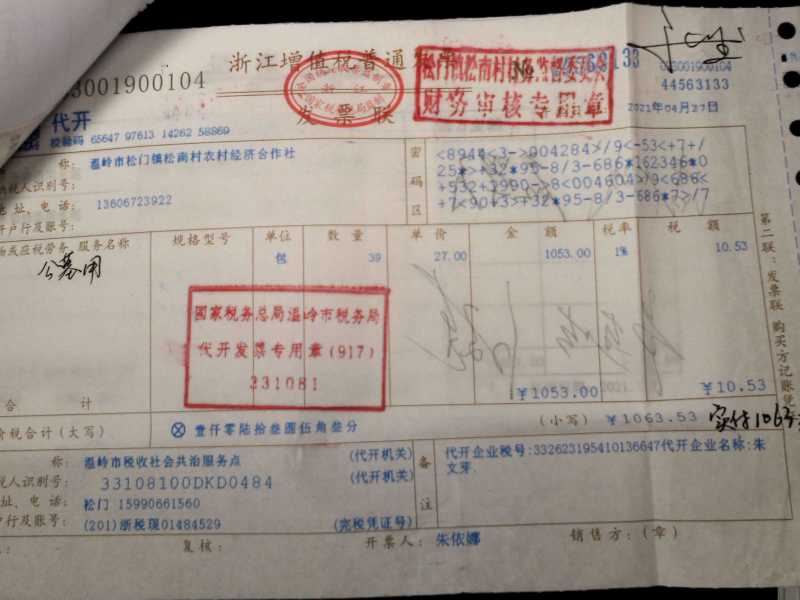 3001900104
浙江增值税普通发票
033001900104
44563133
发票联
2021年04月27日
代开
校验码 65647 97613 14262 58869
松门镇松南村村务监督委员会
财务审核专用章
称: 温岭市松门镇松南村农村经济合作社
纳税人识别号:
地址、电话: 13606723922
开户行及账号:
密码区
<8944<3->004284>/9<-53<+7+/
25*>+/32*95-8/3-686*162346*0
+532+3990->8<004604>/9<686<
+7<90+3>+/32*95-8/3-686*7>/7
物或应税劳务、服务名称 规格型号 单位 数量 单价 金额 税率 税额
公墓用 包 39 27.00 1053.00 1% 10.53
国家税务总局温岭市税务局
代开发票专用章(917)
331081
合计 ￥1053.00 ￥10.53
价税合计(大写) ⊗ 壹仟零陆拾叁圆伍角叁分 (小写) ￥1063.53
实付1063
称: 温岭市税收社会共治服务点 (代开机关)
纳税人识别号: 33108100DKD0484 (代开机关)
地址、电话: 松门 15990661560
开户行及账号: (201)浙税现01484529 (完税凭证号)
备注
代开企业税号:332623195410136647代开企业名称:朱
文芽.
复核: 开票人: 朱依娜 销售方:(章)
第二联:发票联 购买方记账凭证